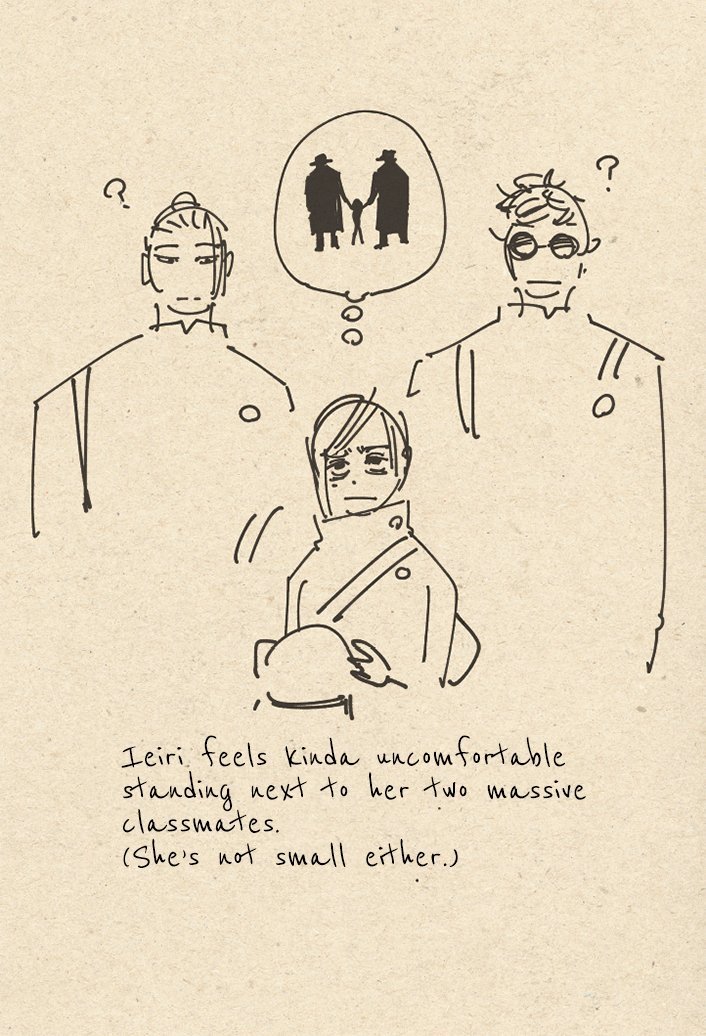 ?
?
Ieiri feels kinda uncomfortable
standing next to her two massive
classmates.
(She's not small either.)